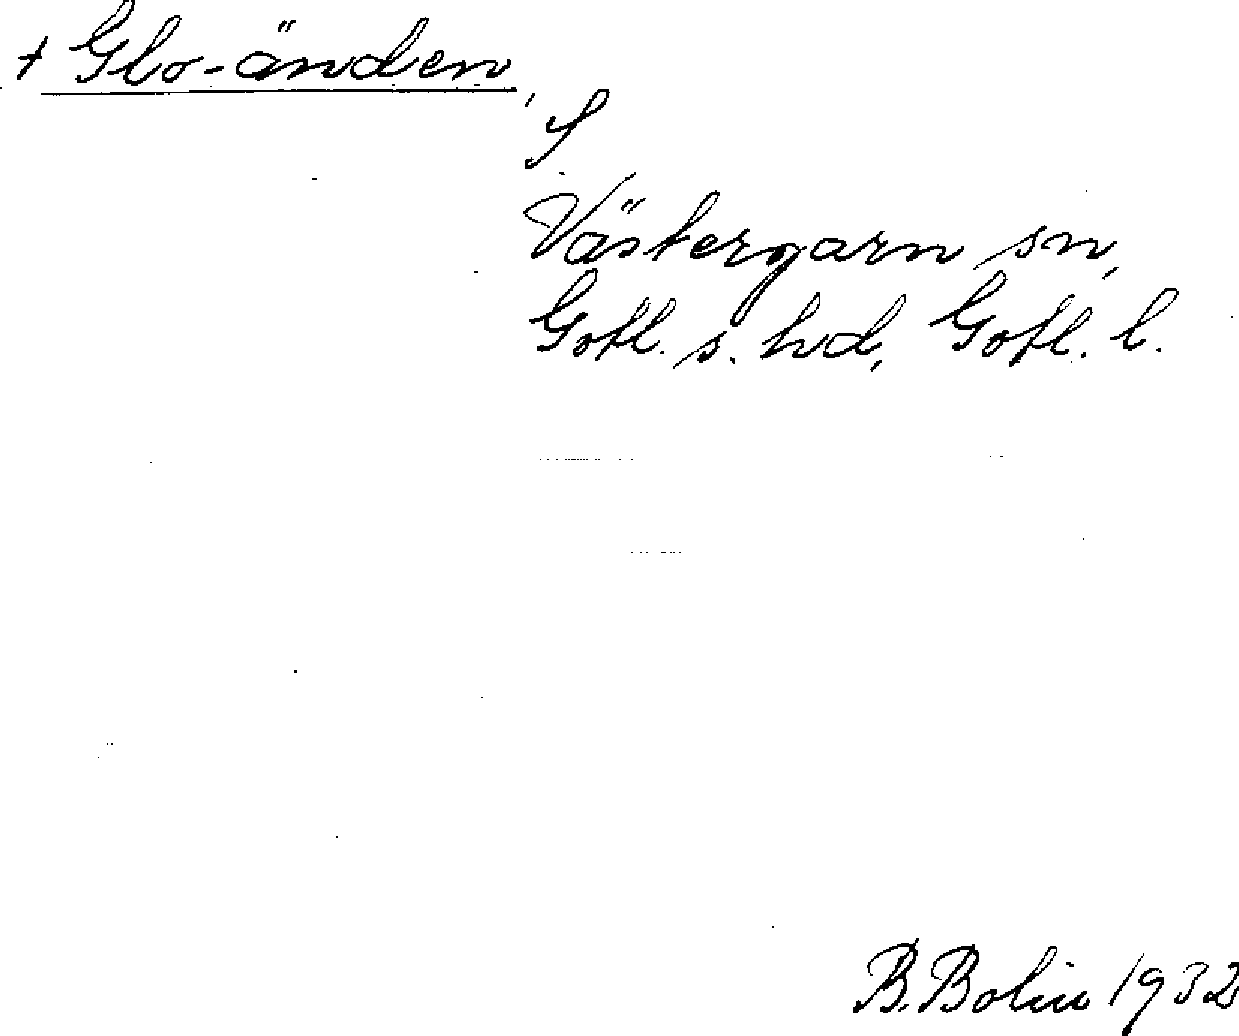 + Glo-änden,
S
Västergarn sn,
Gotl. s. hd, Gotl. l.
B. Bolin 1932